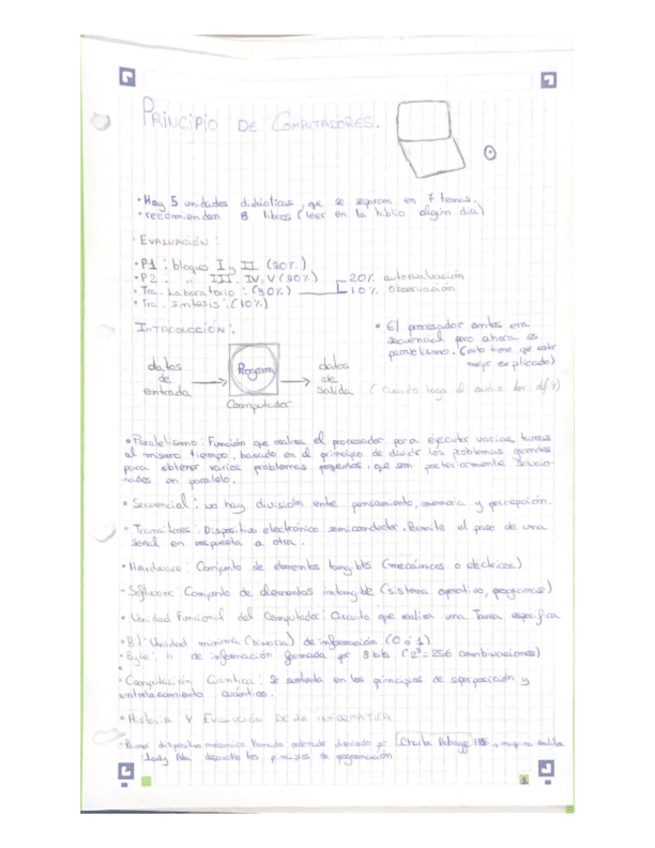 PRINCIPIO DE COMPUTADORES.
• Hay 5 unidades didácticas, que se separan en 7 temas.
• recomiendan 8 libros (leer en la biblio algún día)
• EVALUACIÓN:
• P1: bloques I y II (30%)
• P2: " III, IV, V (30%)
• Tra. Laboratorio: (30%)
20% autoevaluación
10% Observación
• Tra. sintesis: (10%)
INTRODUCCIÓN:
datos de entrada
Program
Computador
datos de salida
• El procesador antes era
secuencial pero ahora es
paralelismo. (esto tiene que estar
mejor explicado)
(Cuando haga el
• Paralelismo: Función que realiza el procesador para ejecutar varias tareas
al mismo tiempo, basado en el principio de dividir los problemas grandes
para obtener varios problemas pequeños, que son posteriormente solucio-
nados en paralelo.
• Secuencial: no hay división entre pensamiento, memoria y percepción.
• Transitores: Dispositivo electrónico semiconductor. Permite el paso de una
señal en respuesta a otra.
• Hardware: Conjunto de elementos tangibles (mecánicos o electricos)
• Software: Conjunto de elementos intangible (sistema operativo, programas)
• Unidad Funcional del Computador: Circuito que realiza una Tarea especifica
• Bit: Unidad minima (binaria) de información (0 ó 1)
• Byte: " de información formada por 8 bits (2⁸=256 combinaciones)
• Computación Cuántica: Se sustenta en los principios de superposición y
entrelazamiento cuántico.
• HISTORIA Y EVOLUCIÓN DE LA INFORMATICA
• Primer dispositivo mecanico llamado diseñado por Charles Babbage
• Lady Ada desarrolló los principios de programación
1